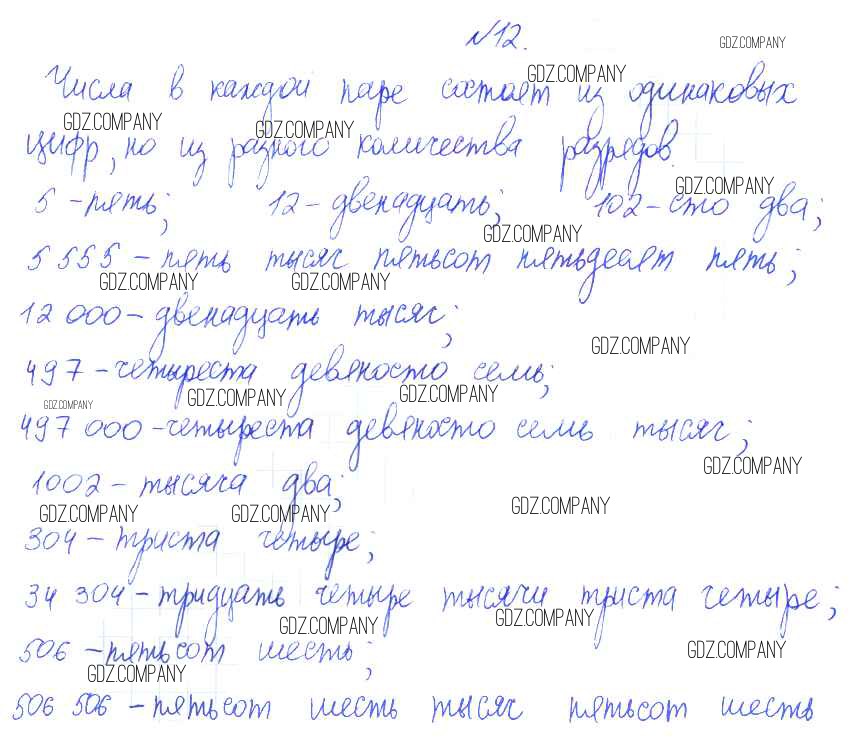 №12.
GDZ.COMPANY
Числа в каждой паре состоят из одинаковых
GDZ.COMPANY
цифр, но из разного количества разрядов.
GDZ.COMPANY GDZ.COMPANY
5 - пять; 12 - двенадцать; 102 - сто два;
GDZ.COMPANY
5 555 - пять тысяч пятьсот пятьдесят пять;
GDZ.COMPANY
GDZ.COMPANY GDZ.COMPANY
12 000 - двенадцать тысяч;
GDZ.COMPANY
497 - четыреста девяносто семь;
GDZ.COMPANY GDZ.COMPANY GDZ.COMPANY
497 000 - четыреста девяносто семь тысяч;
GDZ.COMPANY
1002 - тысяча два;
GDZ.COMPANY GDZ.COMPANY GDZ.COMPANY
304 - триста четыре;
34 304 - тридцать четыре тысячи триста четыре;
GDZ.COMPANY GDZ.COMPANY
506 - пятьсот шесть;
GDZ.COMPANY GDZ.COMPANY
506 506 - пятьсот шесть тысяч пятьсот шесть